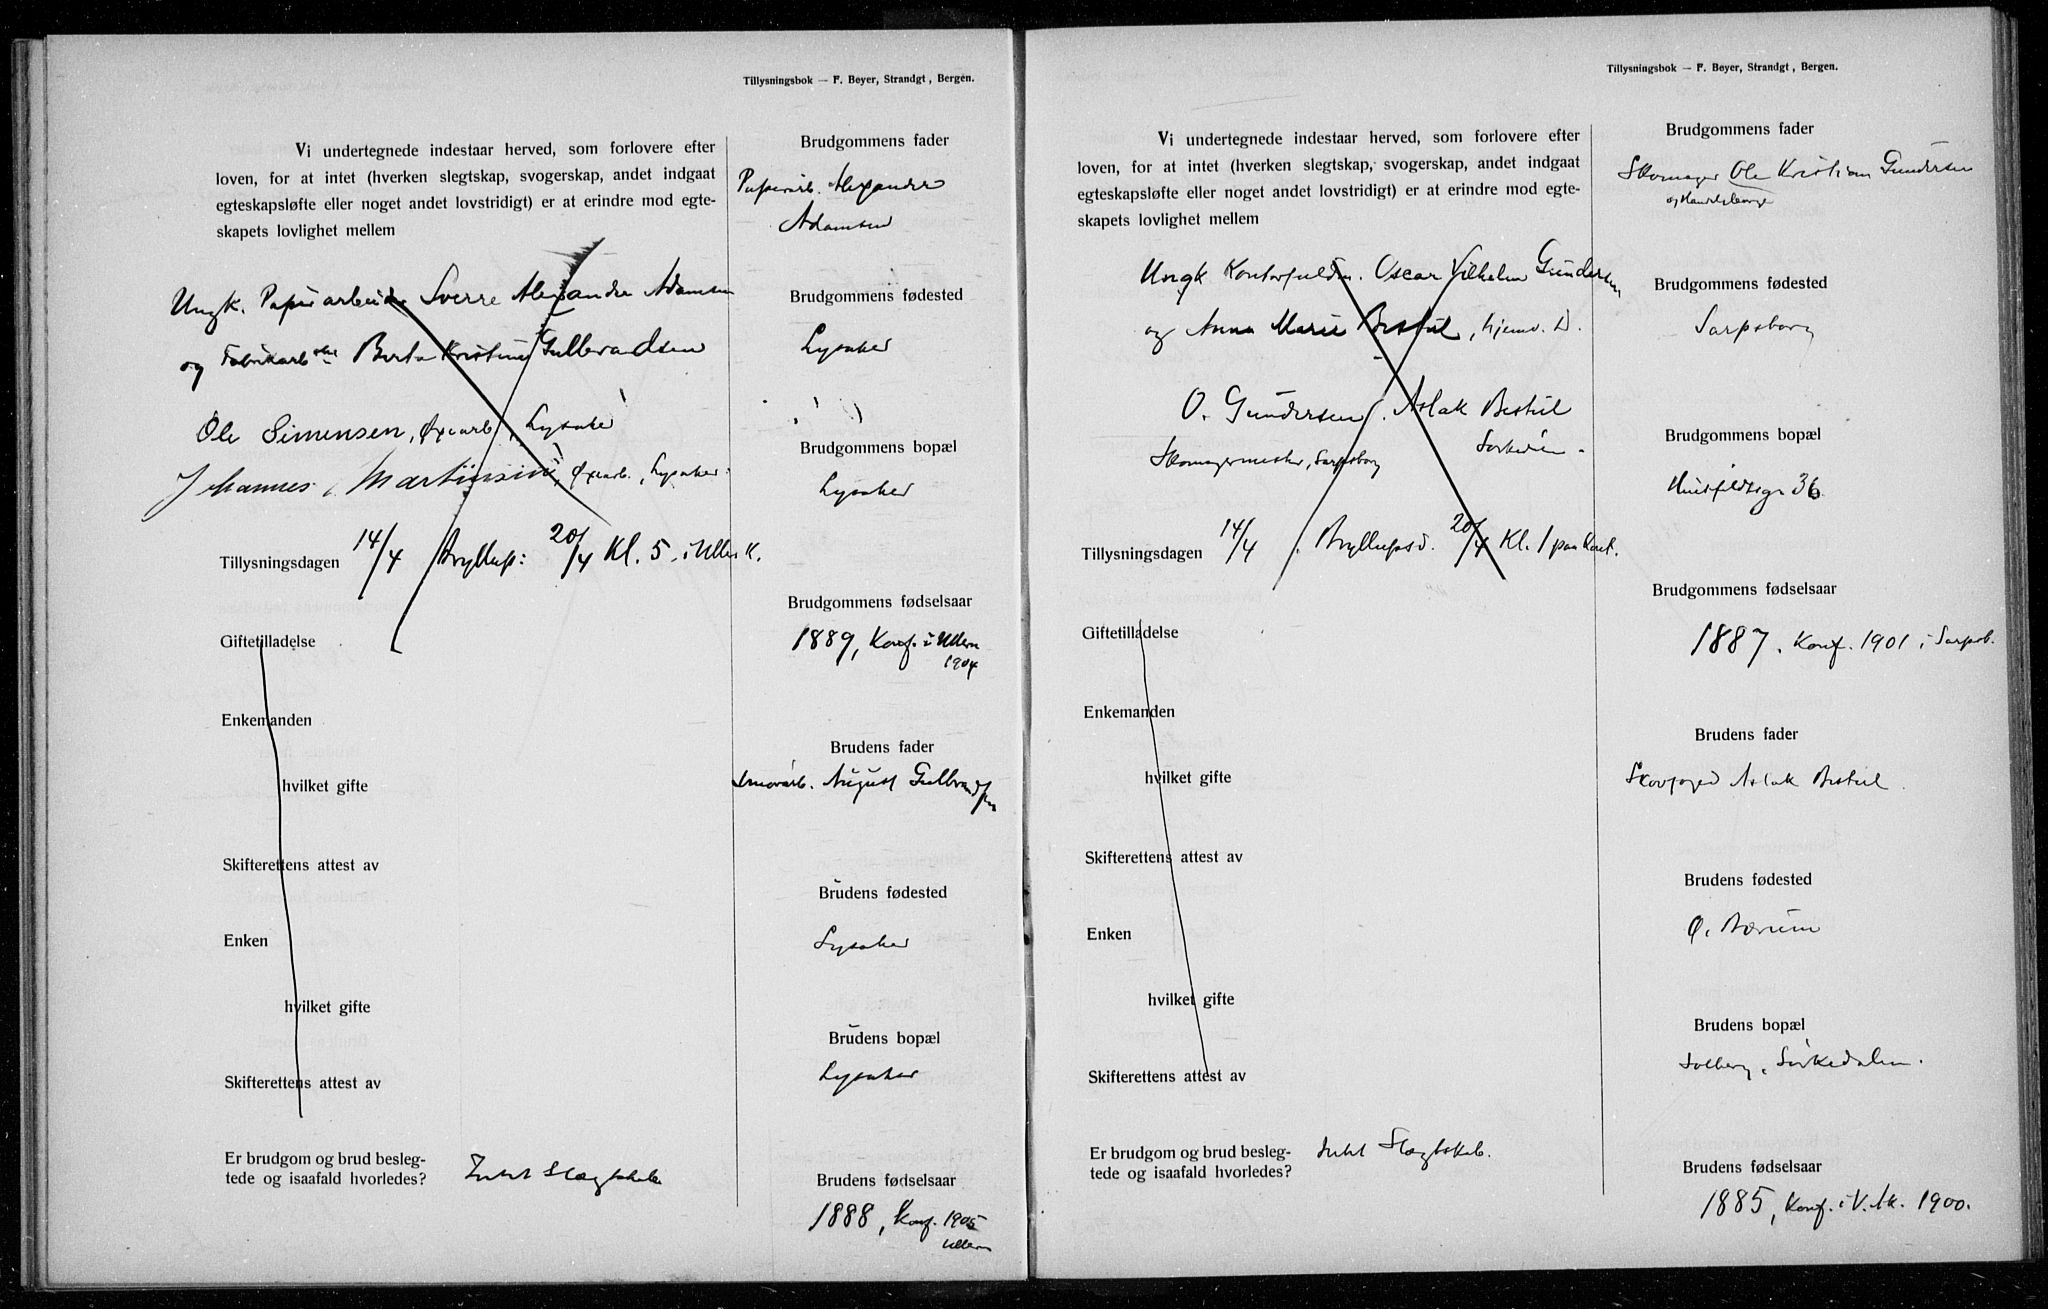 Tillysningsbok — F. Beyer, Strandgt, Bergen.
Vi undertegnede indestaar herved, som forlovere efter
loven, for at intet (hverken slegtskap, svogerskap, andet indgaat
egteskapsløfte eller noget andet lovstridigt) er at erindre mod egte-
skapets lovlighet mellem
Ungk. Papirarbeider Sverre Alexander Adamsen
og Fabrikarb.ske Berta Kristine Gulbrandsen
Ole Simensen, Lysaker
Johannes Martinsen, Lysaker.
Tillysningsdagen 14/4 Bryllup: 20/4 Kl. 5. i Ullern K.
Giftetilladelse
Enkemanden
hvilket gifte
Skifterettens attest av
Enken
hvilket gifte
Skifterettens attest av
Er brudgom og brud besleg-
tede og isaafald hvorledes? Intet Slægtskab
Brudgommens fader
Papirarb. Alexander
Adamsen
Brudgommens fødested
Lysaker
Brudgommens bopæl
Lysaker
Brudgommens fødselsaar
1889, Konf. i Ullern
1904
Brudens fader
August Gulbrandsen
Brudens fødested
Lysaker
Brudens bopæl
Lysaker
Brudens fødselsaar
1888, Konf. 1905
Ullern
Tillysningsbok — F. Beyer, Strandgt, Bergen.
Vi undertegnede indestaar herved, som forlovere efter
loven, for at intet (hverken slegtskap, svogerskap, andet indgaat
egteskapsløfte eller noget andet lovstridigt) er at erindre mod egte-
skapets lovlighet mellem
Ungk Kontorfuldm. Oscar Vilhelm Gundersen
og Anna Marie Bestul, hjemv. D.
O. Gundersen. Aslak Bestul
Skomagermester, Sarpsborg
Tillysningsdagen 14/4. Bryllupsd. 20/4 Kl. 1 paa Kont.
Giftetilladelse
Enkemanden
hvilket gifte
Skifterettens attest av
Enken
hvilket gifte
Skifterettens attest av
Er brudgom og brud besleg-
tede og isaafald hvorledes? Intet Slægtskab.
Brudgommens fader
Skomager Ole Kristian Gundersen
Brudgommens fødested
Sarpsborg
Brudgommens bopæl
Huitfeldtsgr 36
Brudgommens fødselsaar
1887. Konf. 1901 i Sarpsb.
Brudens fader
Skovfoged Aslak Bestul
Brudens fødested
Ø. Bærum
Brudens bopæl
Solberg, Sørkedalen.
Brudens fødselsaar
1885, Konf. i V. Ak. 1900.